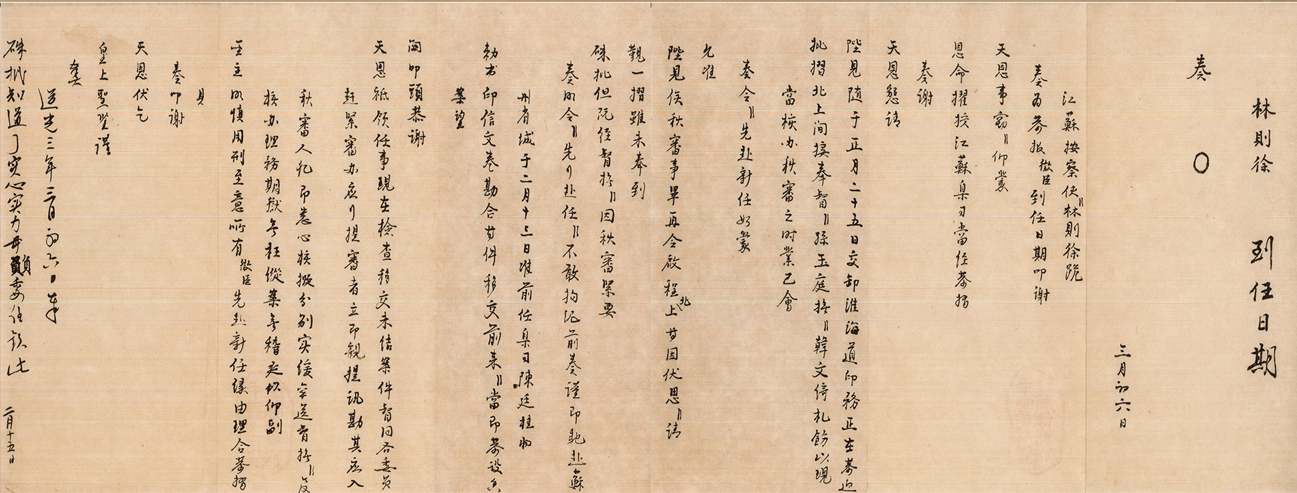 林則徐　到任日期
三月初六日
奏
江蘇按察使〻林則徐跪
奏為恭报微臣到任日期叩謝
天恩事窃〻仰蒙
恩命擢授江蘇臬司當經恭摺
奏謝
天恩懇請
陛見随于正月二十五日交卸淮海道印務正在恭迎
批摺北上间接奉督〻孫玉庭撫〻韓文绮札飭以現
當核办秋審之时業已會
奏令〻先赴新任如蒙
允准
陛見俟秋審事畢再令啟程北上等因伏思〻請
觐一摺雖未奉到
硃批但既经督撫〻因秋審緊要
奏明令〻先行赴任〻不敢拘泥前奏谨即馳赴蘇
州省城于二月十三日准前任臬司陳廷桂将
勅书印信文卷勘合等件移交前来〻當即恭设香
案望
阙叩頭恭谢
天恩祗领任事現在檢查移交未结案件督同各委員
赶緊審办应行提審者立即親提讯勘其应入
秋審人犯即悉心核擬分别实缓牽送督撫〻反
核办理务期獄无枉縱案无稽延以仰副
圣主明慎用刑至意所有微臣先赴新任缘由理合恭摺
具
奏叩谢
天恩伏乞
皇上聖鉴谨
奏
道光三年三月初六日奉
硃批知道了实心实力毋負委任钦此
二月十五日